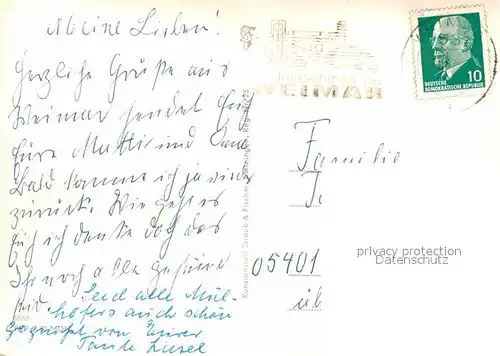 Meine Lieben!
Herzliche Grüße aus
Weimar sendet Euch
Eure Mutti und Oma
Bald komme ich ja wieder
zurück. Wie geht es
Euch ich denke doch das
Ihr noch alle gesund
seid. Seid alle Mül-
hofers auch schön
gegrüßt von Eurer
Tante Liesel
WEIMAR
DEUTSCHE
DEMOKRATISCHE REPUBLIK
10
Familie
05401
privacy protection
Datenschutz
Kunstanstalt Straub & Fischer, Meiningen